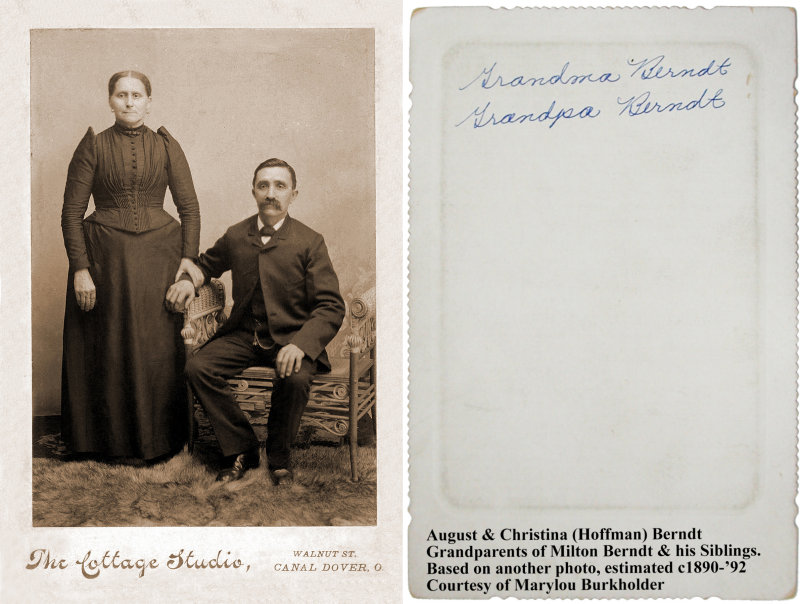 The Cottage Studio,
WALNUT ST.
CANAL DOVER, O.
Grandma Berndt
Grandpa Berndt
August & Christina (Hoffman) Berndt
Grandparents of Milton Berndt & his Siblings.
Based on another photo, estimated c1890-'92
Courtesy of Marylou Burkholder